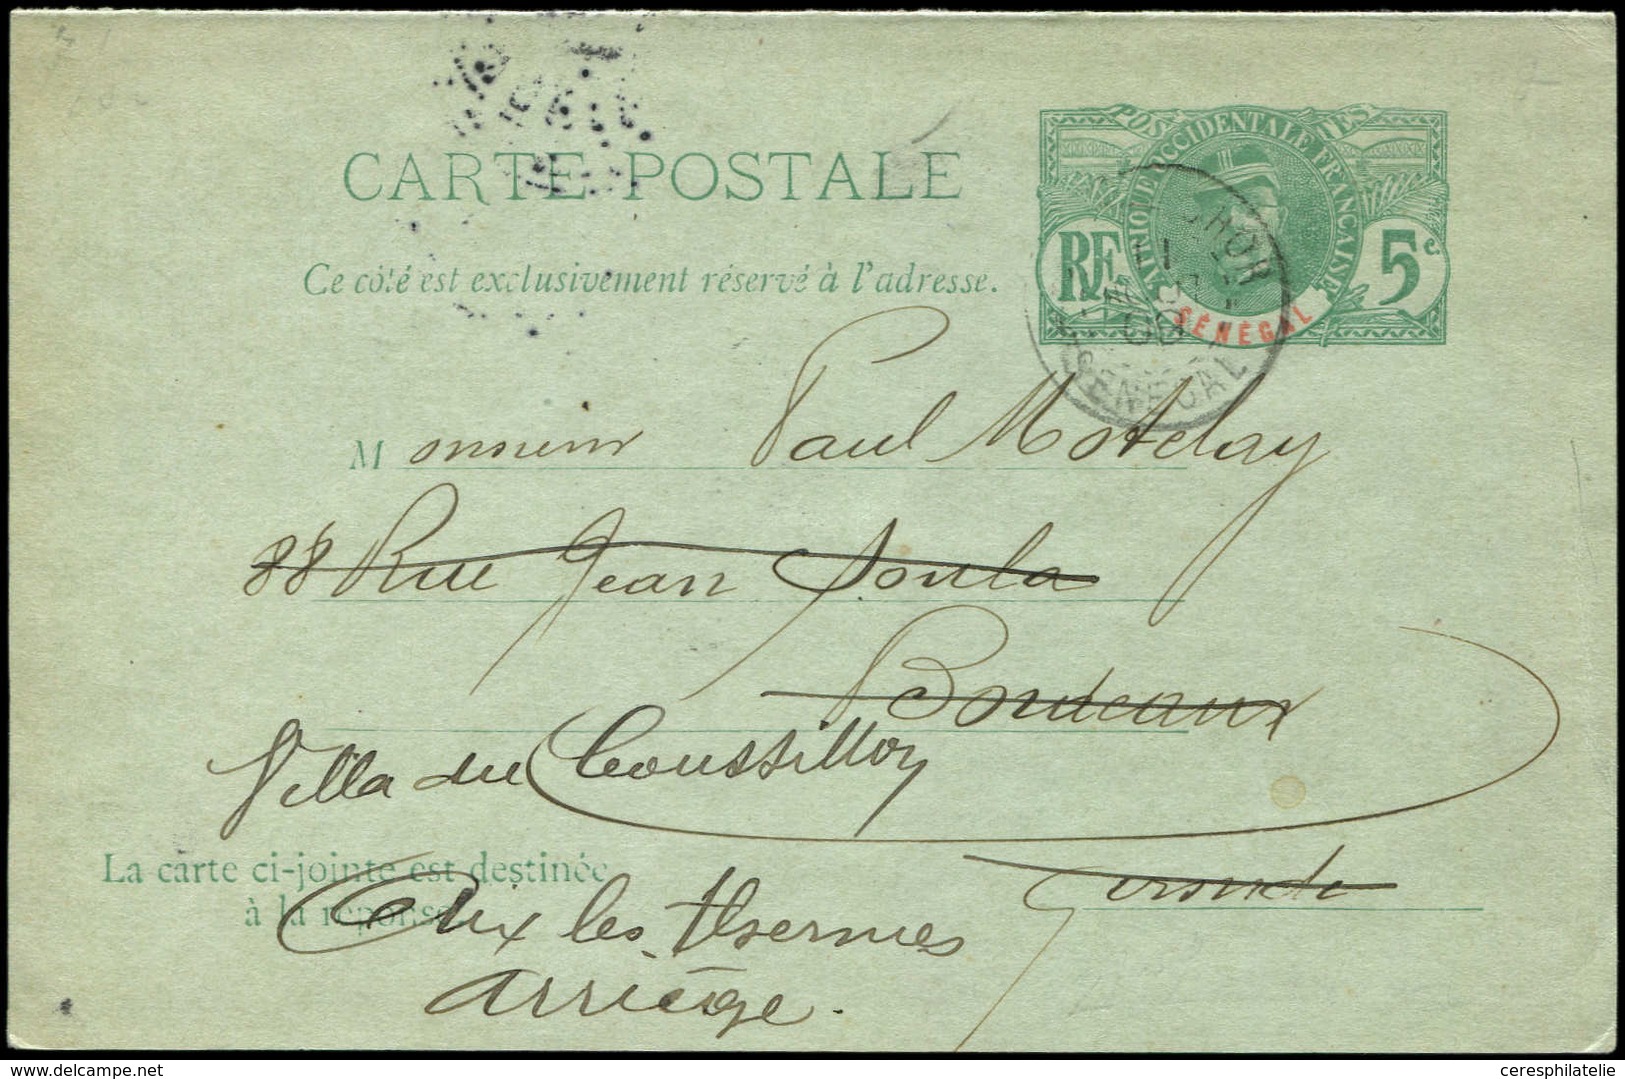 POSTES
AFRIQUE OCCIDENTALE FRANÇAISE
CARTE POSTALE
RF
5 c.
SÉNÉGAL
SENEGAL
Ce côté est exclusivement réservé à l'adresse.
Monsieur Paul Motelay
88 Rue Jean Soula
Bordeaux
Villa du
La carte ci-jointe est destinée
à la réponse.
Gironde
Aix les thermes
Arriége.
delcampe.net
ceresphilatelie